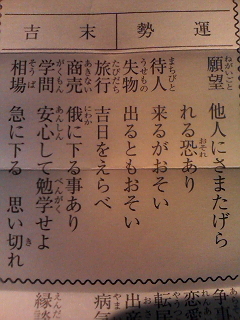 運勢　末吉
願望　他人にさまたげら
れる恐あり
待人　来るがおそい
失物　出るともおそい
旅行　吉日をえらべ
商売　俄に下る事あり
学問　安心して勉学せよ
相場　急に下る　思い切れ
争事
恋愛
転居
出産
病気
縁談